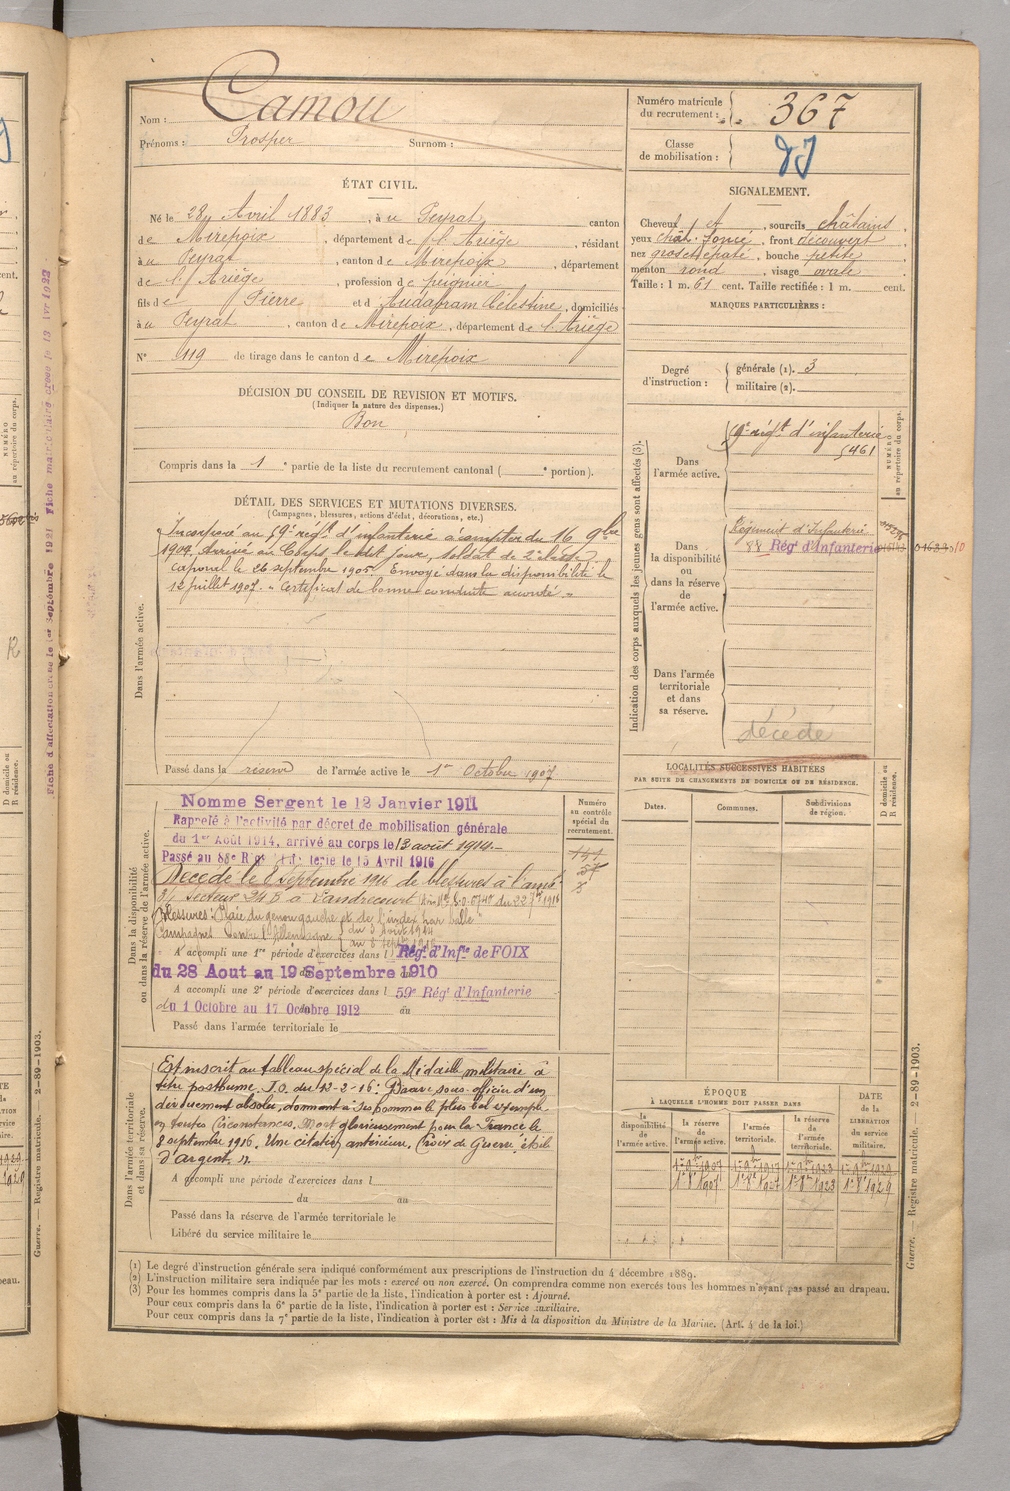 Nom : Camou
Prénoms : Prosper Surnom :
Numéro matricule du recrutement : 367
Classe de mobilisation :
ÉTAT CIVIL.
Né le 28 Avril 1883, à u Peyrat canton
de Mirepoix, département de l'Ariège, résidant
à u Peyrat, canton de Mirepoix, département
de l'Ariège, profession de peignier
fils de Pierre et d' Audabram Célestine, domiciliés
à u Peyrat, canton de Mirepoix, département de l'Ariège
N° 119 de tirage dans le canton de Mirepoix
SIGNALEMENT.
Cheveux et, sourcils châtains,
yeux chât. foncé, front découvert
nez gros et épaté, bouche petite,
menton rond, visage ovale
Taille : 1 m. 61 cent. Taille rectifiée : 1 m. cent.
MARQUES PARTICULIÈRES :
Degré d'instruction :
générale (1). 3
militaire (2).
DÉCISION DU CONSEIL DE REVISION ET MOTIFS.
(Indiquer la nature des dispenses.)
Bon
Compris dans la 1e partie de la liste du recrutement cantonal ( e portion).
DÉTAIL DES SERVICES ET MUTATIONS DIVERSES.
(Campagnes, blessures, actions d'éclat, décorations, etc.)
Dans l'armée active.
Incorporé au 59e régt d'infanterie à compter du 16 9bre
1904. Arrivé au Corps le dit jour, soldat de 2e classe.
Caporal le 26 septembre 1905. Envoyé dans la disponibilité le
12 juillet 1907. « Certificat de bonne conduite accordé. »
Passé dans la réserve de l'armée active le 1er Octobre 1907
Indication des corps auxquels les jeunes gens sont affectés (3).
NUMÉRO au répertoire du corps.
Dans l'armée active.
59e régt d'infanterie
5461
Dans la disponibilité ou dans la réserve de l'armée active.
Régiment d'Infanterie
88 Régt d'Infanterie
Dans l'armée territoriale et dans sa réserve.
décédé
Dans la disponibilité ou dans la réserve de l'armée active.
Numéro au contrôle spécial du recrutement.
Nomme Sergent le 12 Janvier 1911
Rappelé à l'activité par décret de mobilisation générale
du 1er Août 1914, arrivé au corps le 12 août 1914.-
Passé au 88e Régt d'Infanterie le 15 Avril 1916
Décédé le 8 septembre 1916 de blessures à l'amb.
3/ Secteur 24 B à Landrecourt
Blessures : Plaie du genou gauche et de l'index par balle
Campagnes Contre l'Allemagne du 3 Août 1914
au 8 septbre 1916
A accompli une 1re période d'exercices dans l Régt d'Infie de FOIX
du 28 Aout au 19 Septembre 1910
A accompli une 2e période d'exercices dans l 59e Régt d'Infanterie
du 1 Octobre au 17 Octobre 1912
Passé dans l'armée territoriale le
LOCALITÉS SUCCESSIVES HABITÉES
PAR SUITE DE CHANGEMENTS DE DOMICILE OU DE RÉSIDENCE.
Dates. Communes. Subdivisions de région.
D domicile ou R résidence.
Dans l'armée territoriale et dans sa réserve.
Est inscrit au tableau spécial de la Médaille militaire à
titre posthume. J.O. du 12-2-16: Brave sous-officier d'un
dévouement absolu, donnant à ses hommes le plus bel exemple
en toutes circonstances. Mort glorieusement pour la France le
8 septembre 1916. Une citation antérieure. Croix de Guerre étoile
d'argent.
A accompli une période d'exercices dans l
du au
Passé dans la réserve de l'armée territoriale le
Libéré du service militaire le
ÉPOQUE
À LAQUELLE L'HOMME DOIT PASSER DANS
la disponibilité de l'armée active.
la réserve de l'armée active.
l'armée territoriale.
la réserve de l'armée territoriale.
DATE de la LIBÉRATION du service militaire.
1er 9bre 1907 1er 9bre 1917 1er 9bre 1923 1er 9bre 1929
1er 8bre 1907 1er 8bre 1917 1er 8bre 1923 1er 8bre 1929
(1) Le degré d'instruction générale sera indiqué conformément aux prescriptions de l'instruction du 4 décembre 1889.
(2) L'instruction militaire sera indiquée par les mots : exercé ou non exercé. On comprendra comme non exercés tous les hommes n'ayant pas passé au drapeau.
(3) Pour les hommes compris dans la 5e partie de la liste, l'indication à porter est : Ajourné.
Pour ceux compris dans la 6e partie de la liste, l'indication à porter est : Service auxiliaire.
Pour ceux compris dans la 7e partie de la liste, l'indication à porter est : Mis à la disposition du Ministre de la Marine. (Art. 4 de la loi.)
Guerre. — Registre matricule. — 2-89-1903.
Guerre. — Registre matricule. 2-89-1903.
Fiche d'affectation créée le 1er Septembre 1921 Fiche matriculaire créée le 13 Avr 1922